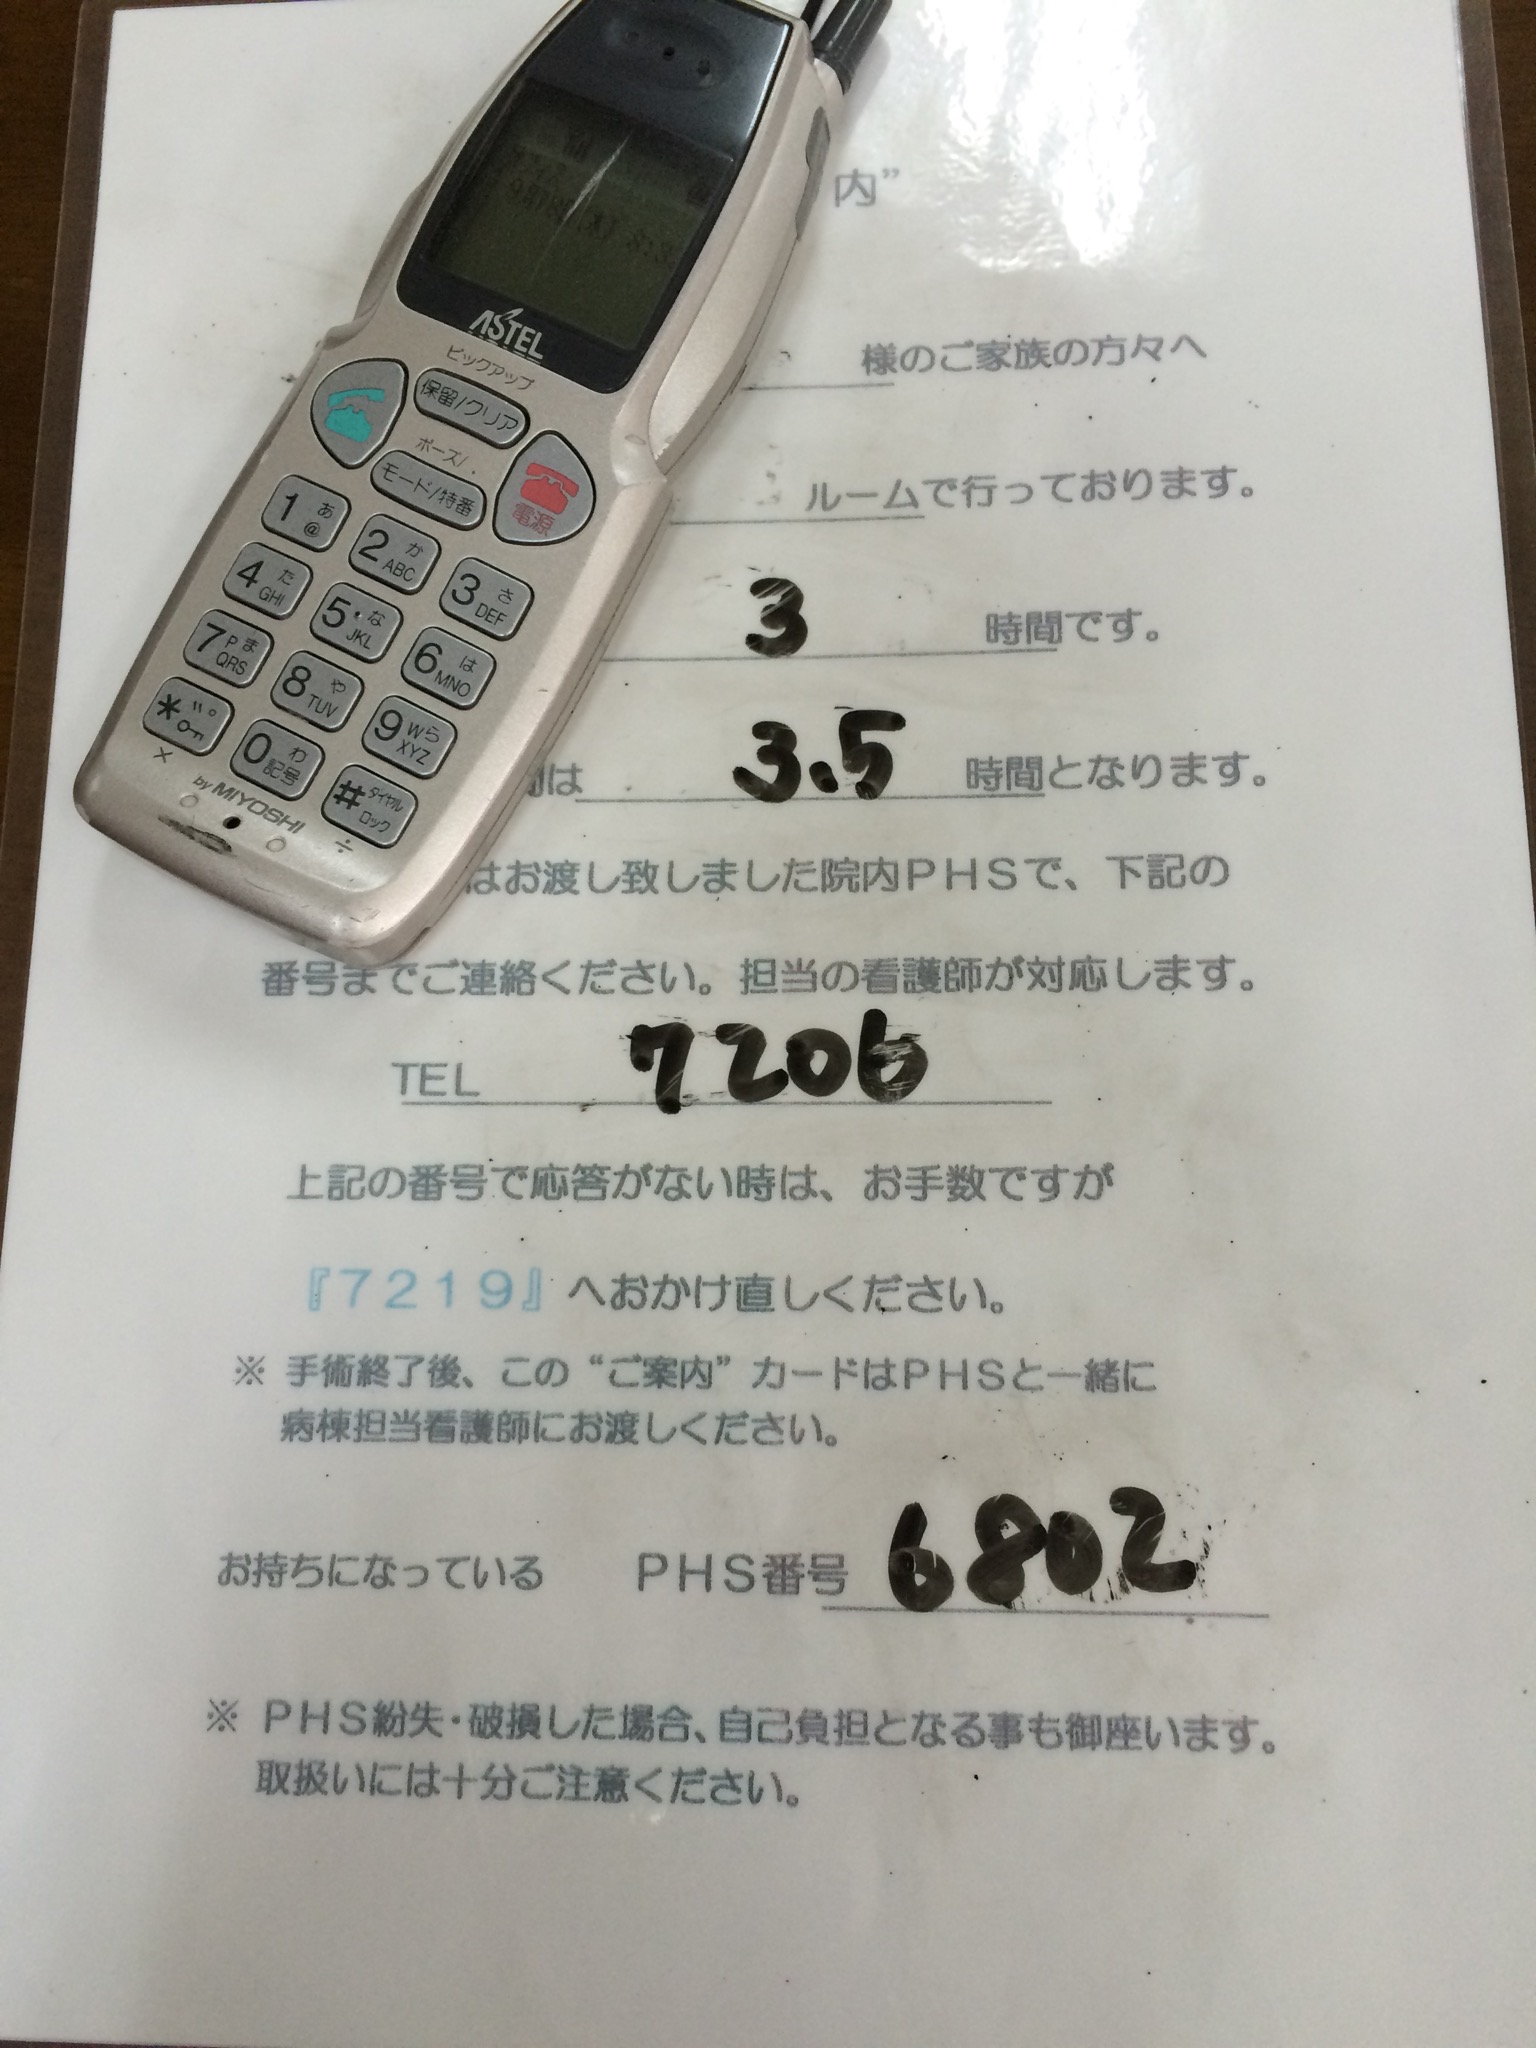 ASTEL
ピックアップ
保留/クリア
ポーズ/.
モード/特番
電源
1 あ @
2 か ABC
3 さ DEF
4 た GHI
5 な JKL
6 は MNO
7 ま PQRS
8 や TUV
9 ら WXYZ
* ゛゜
0 わ 記号
# ダイヤルロック
× ÷
by MIYOSHI
内”
様のご家族の方々へ
ルームで行っております。
3 時間です。
間は 3.5 時間となります。
はお渡し致しました院内PHSで、下記の
番号までご連絡ください。担当の看護師が対応します。
TEL 7206
上記の番号で応答がない時は、お手数ですが
『7219』へおかけ直しください。
※ 手術終了後、この“ご案内”カードはPHSと一緒に
病棟担当看護師にお渡しください。
お持ちになっている PHS番号 6802
※ PHS紛失・破損した場合、自己負担となる事も御座います。
取扱いには十分ご注意ください。